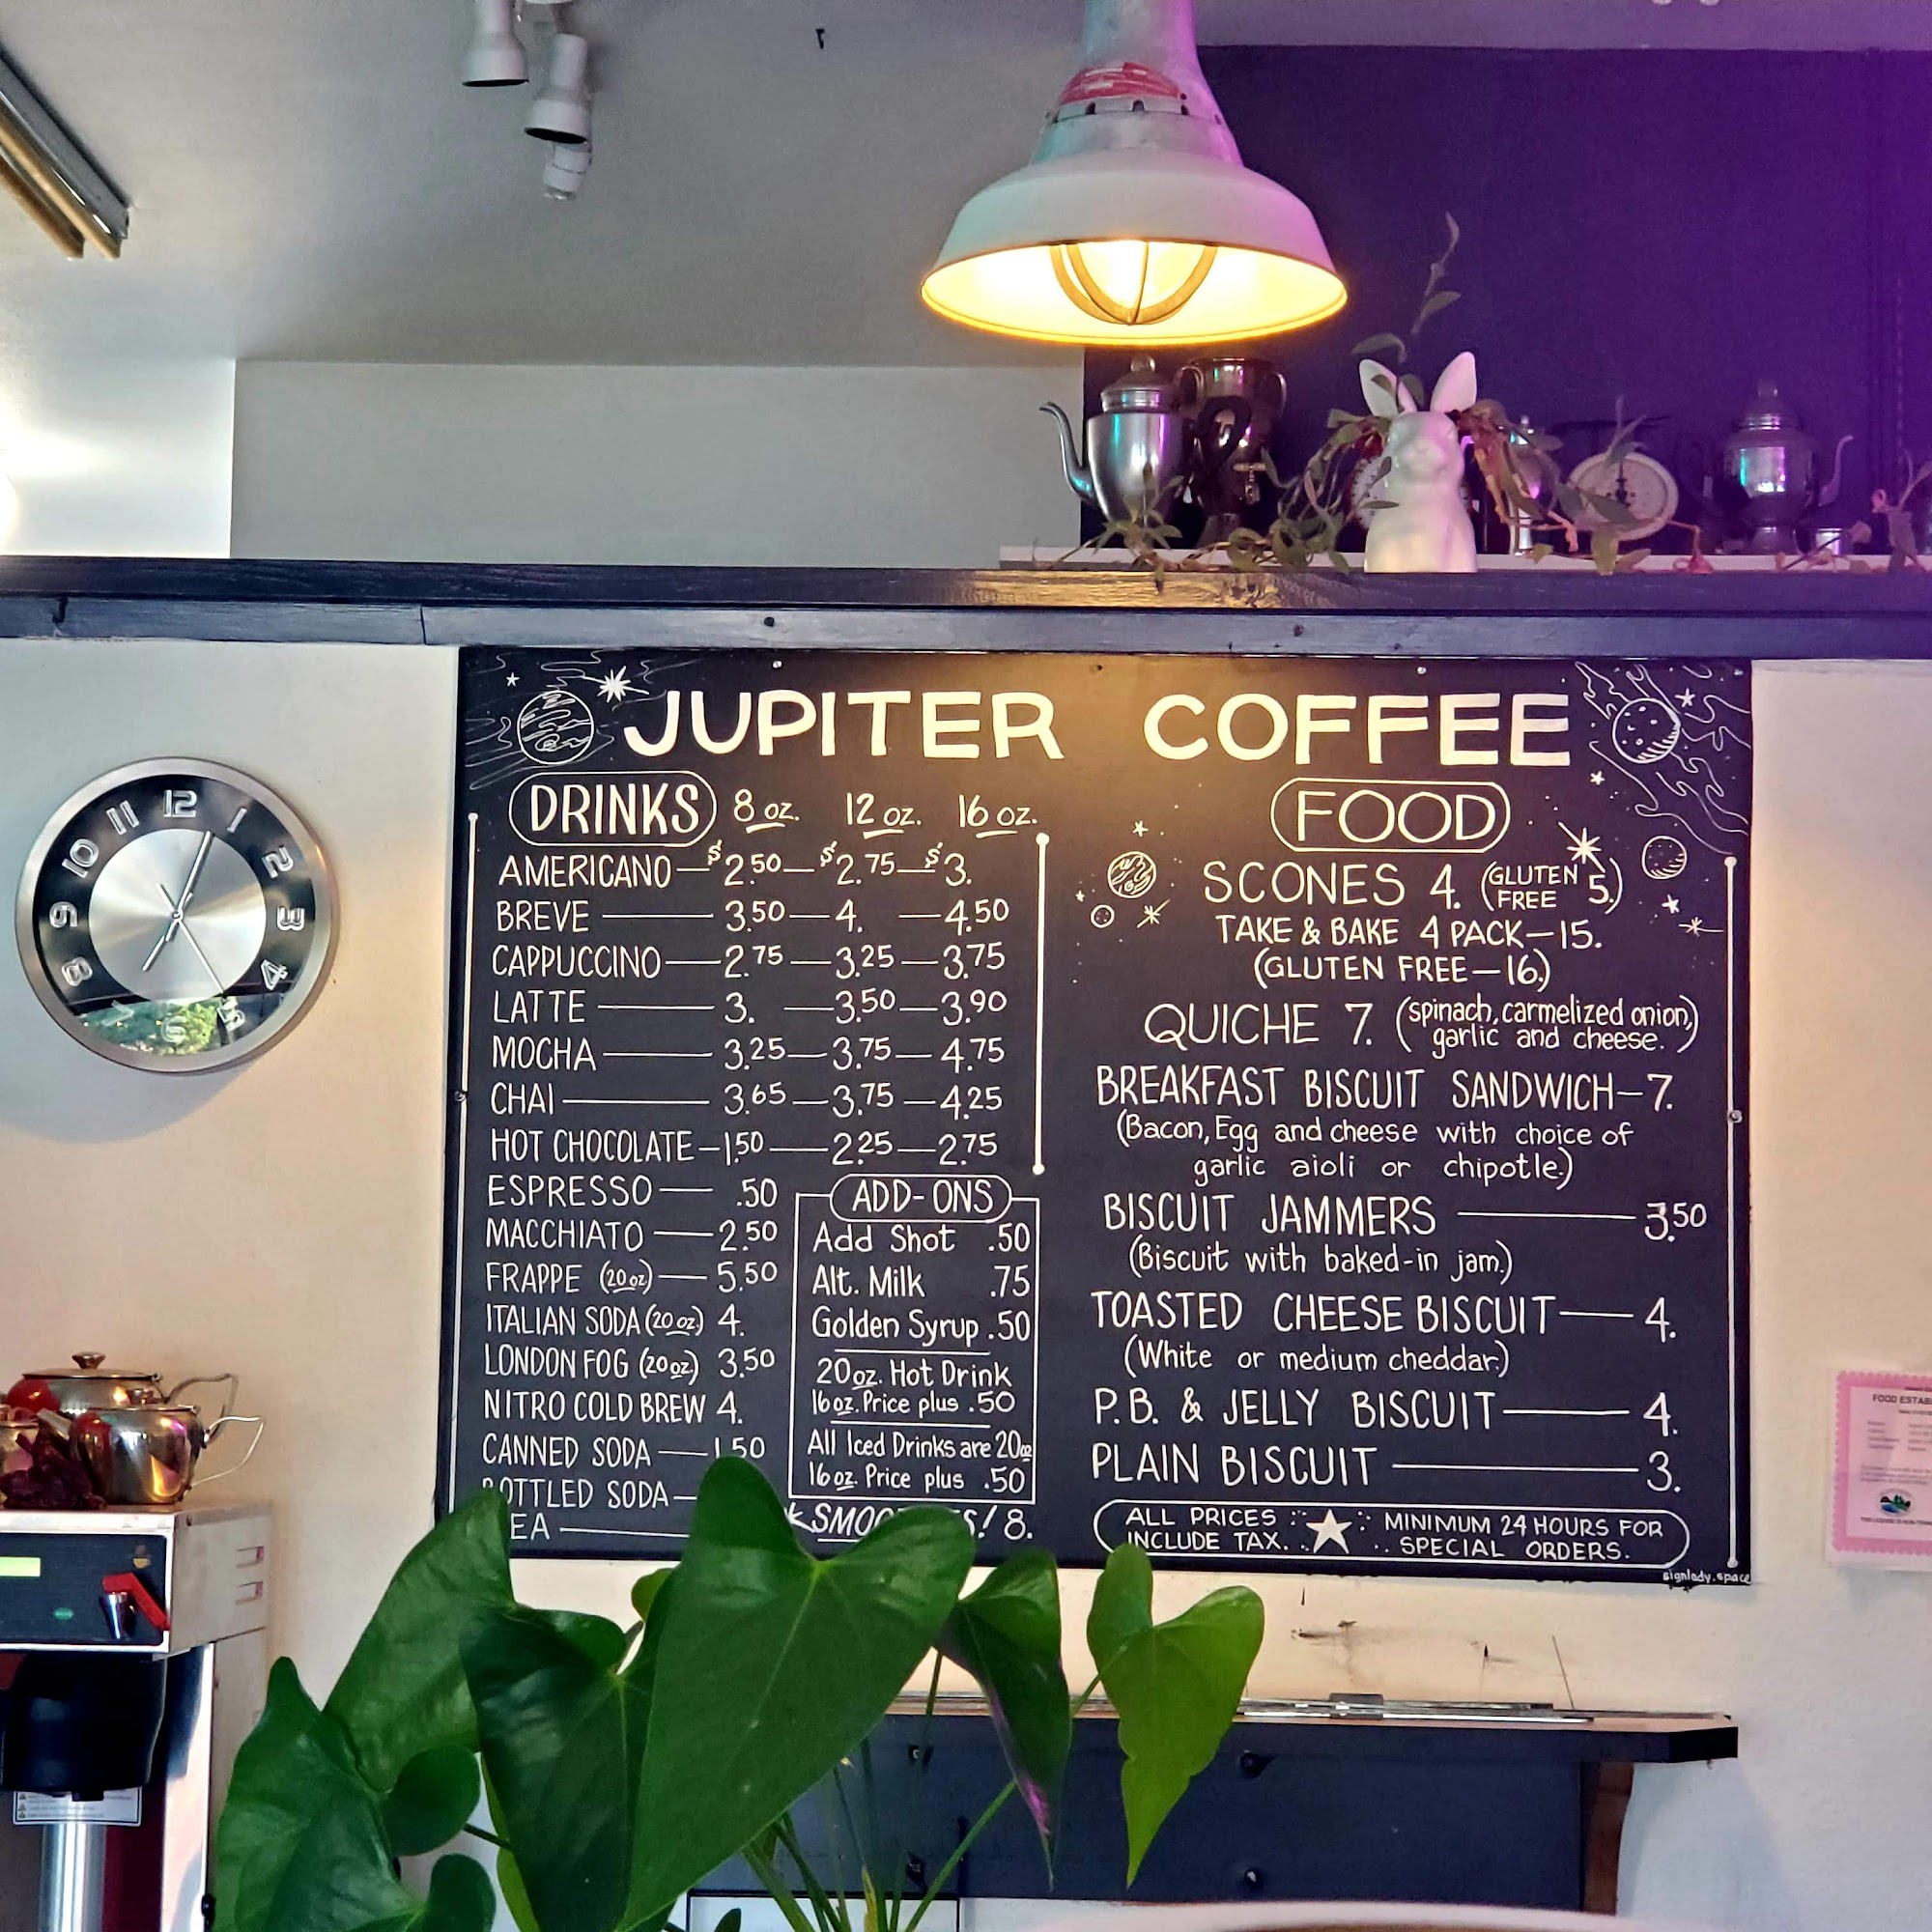 JUPITER COFFEE
DRINKS 8 oz. 12 oz. 16 oz.
AMERICANO—$2.50—$2.75—$3.
BREVE — 3.50— 4. —4.50
CAPPUCCINO—2.75—3.25—3.75
LATTE — 3. —3.50—3.90
MOCHA — 3.25—3.75—4.75
CHAI — 3.65—3.75—4.25
HOT CHOCOLATE—1.50—2.25—2.75
ESPRESSO — .50
MACCHIATO — 2.50
FRAPPE (20 oz)— 5.50
ITALIAN SODA (20 oz.) 4.
LONDON FOG (20 oz.) 3.50
NITRO COLD BREW 4.
CANNED SODA — 1.50
BOTTLED SODA—
ADD-ONS
Add Shot .50
Alt. Milk .75
Golden Syrup .50
20 oz. Hot Drink
16 oz. Price plus .50
All Iced Drinks are 20 oz
16 oz. Price plus .50
8.
FOOD
SCONES 4. (GLUTEN FREE 5.)
TAKE & BAKE 4 PACK—15.
(GLUTEN FREE—16.)
QUICHE 7. (spinach, carmelized onion,
garlic and cheese.)
BREAKFAST BISCUIT SANDWICH—7.
(Bacon, Egg and cheese with choice of
garlic aioli or chipotle.)
BISCUIT JAMMERS — 3.50
(Biscuit with baked-in jam.)
TOASTED CHEESE BISCUIT— 4.
(White or medium cheddar.)
P.B. & JELLY BISCUIT— 4.
PLAIN BISCUIT — 3.
ALL PRICES
INCLUDE TAX.
MINIMUM 24 HOURS FOR
SPECIAL ORDERS.
signlady.space
12
1
2
3
4
5
6
7
8
9
10
11
FOOD